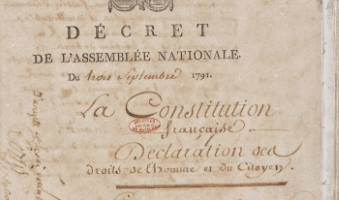 DÉCRET
DE L'ASSEMBLÉE NATIONALE.
Du trois Septembre 1791.
La Constitution
française.
Déclaration des
droits de l'homme et du Citoyen.